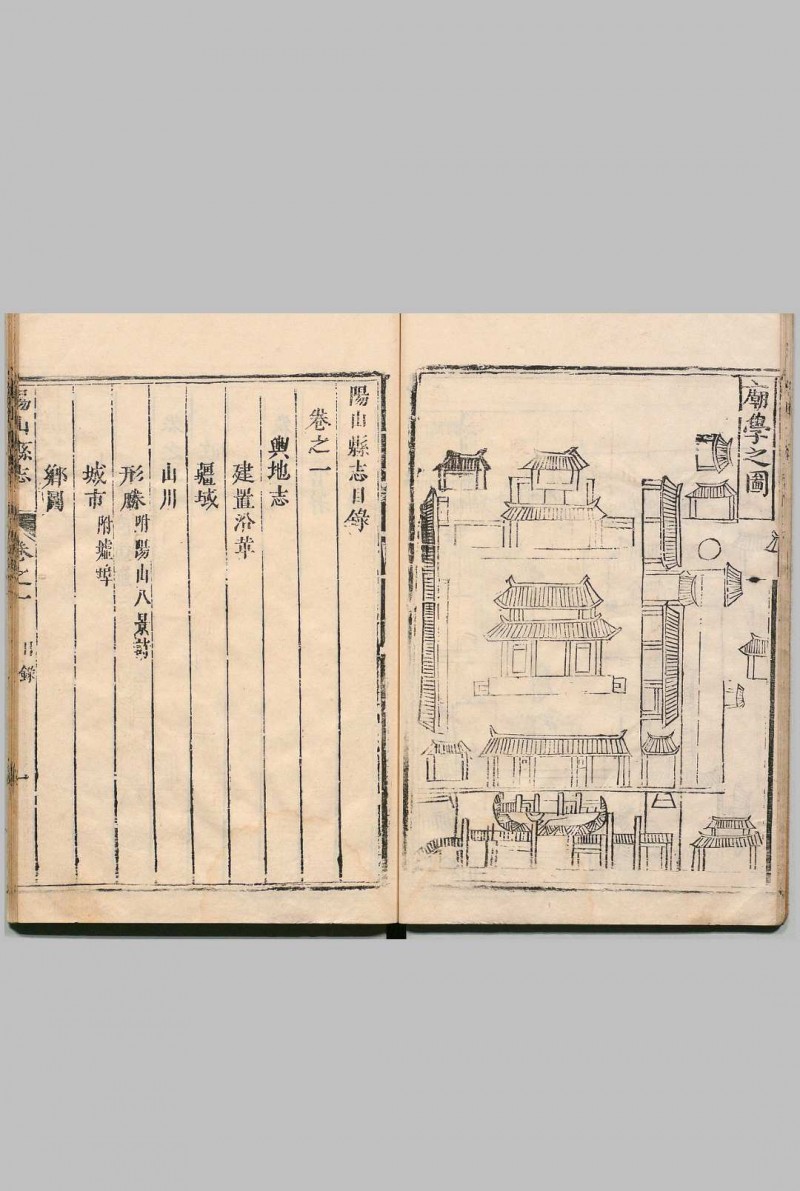 廟學之圖
陽山縣志目錄
卷之一
輿地志
建置沿革
疆域
山川
形勝附陽山八景詩
城市附墟埠
鄉圖
陽山縣志 卷之一 目錄 一